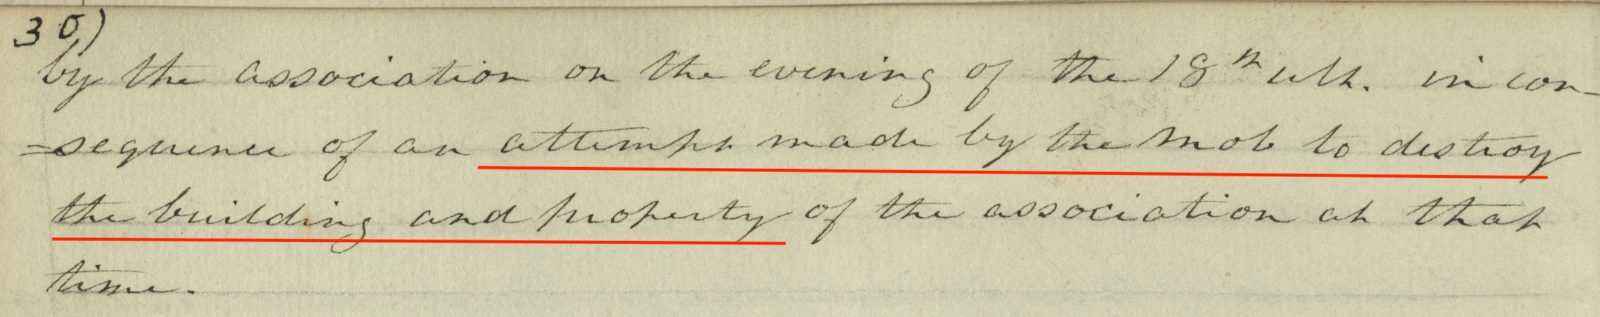 30)
by the association on the evening of the 18th ult. in con-
=sequence of an attempt made by the mob to destroy
the building and property of the association at that
time.